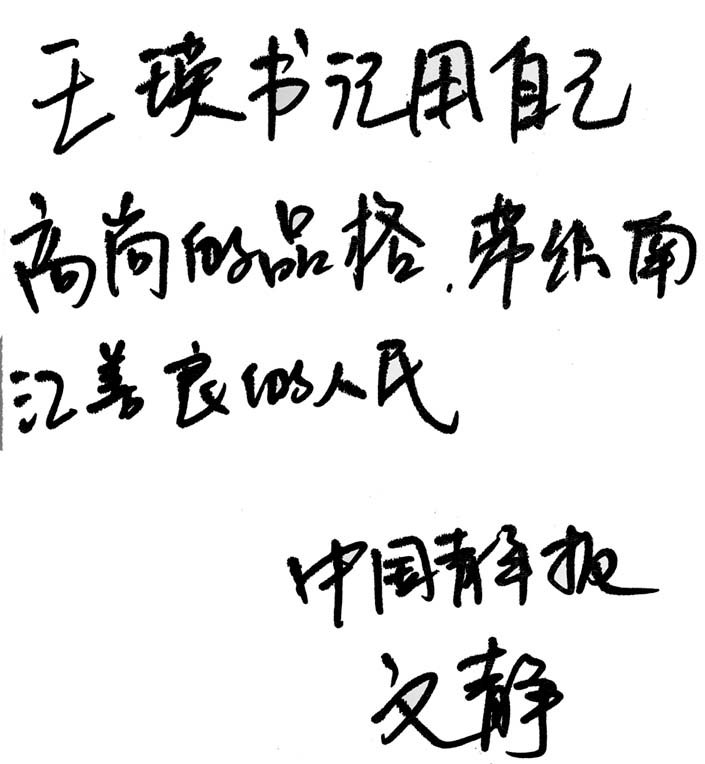 王瑛书记用自己
高尚的品格，带给南
江善良的人民
中国青年报
文静